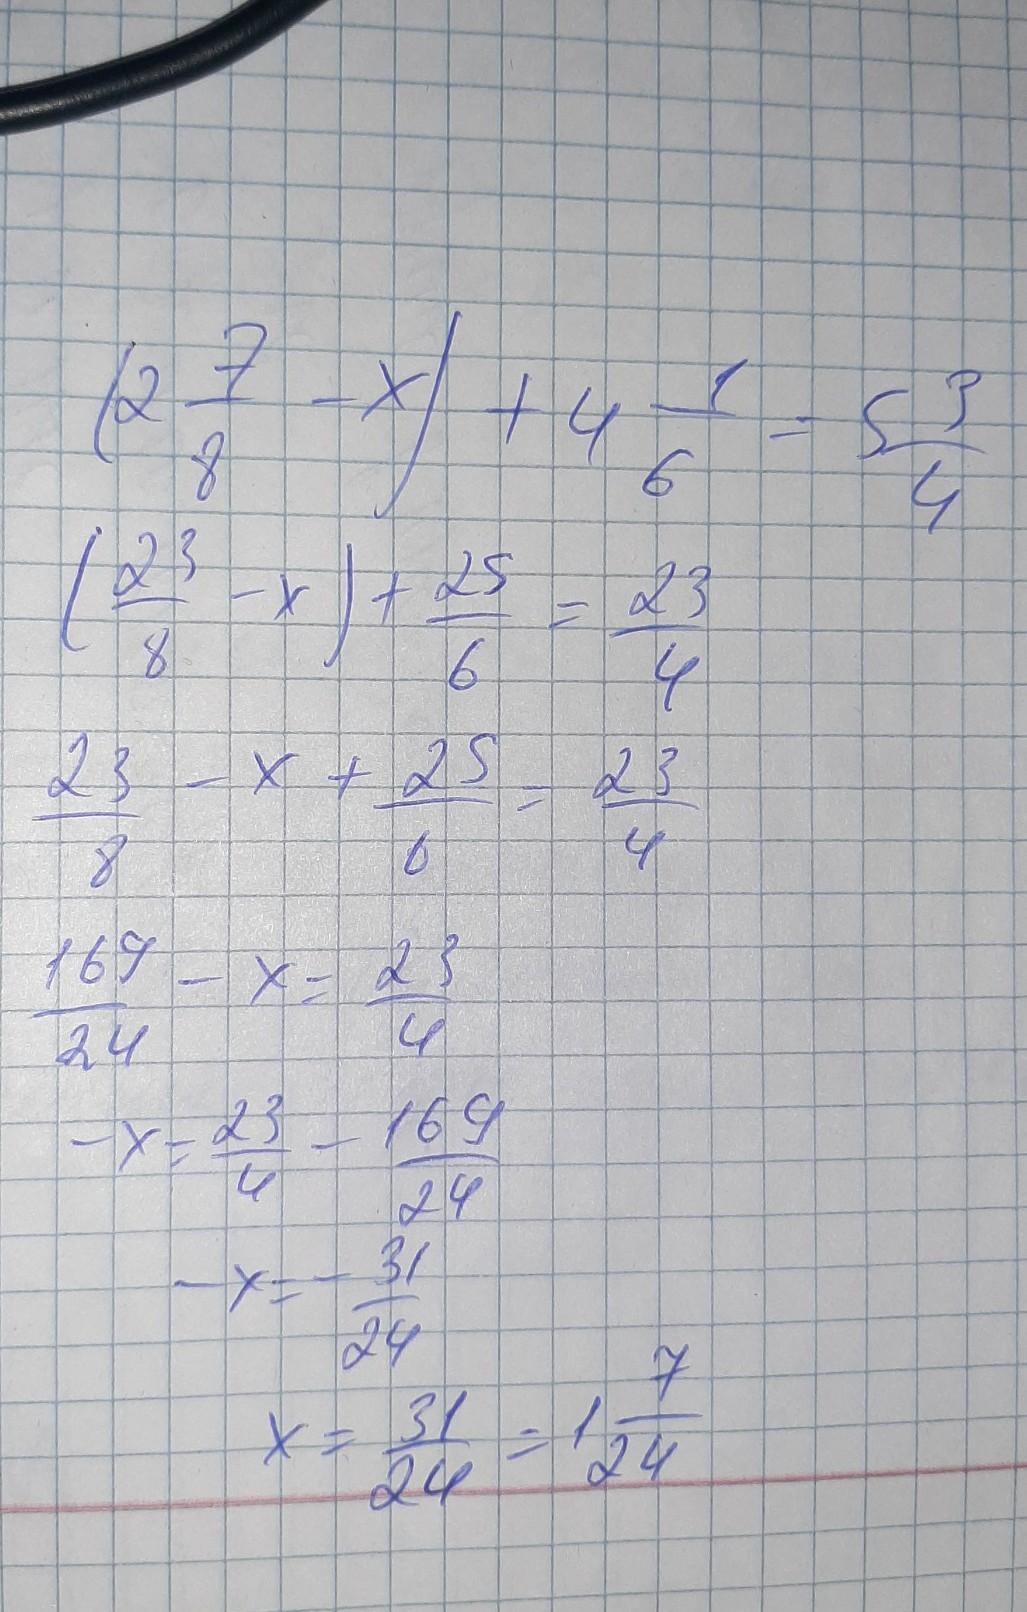 (2 7/8 - x) + 4 1/6 = 5 3/4
(23/8 - x) + 25/6 = 23/4
23/8 - x + 25/6 = 23/4
169/24 - x = 23/4
-x = 23/4 - 169/24
-x = - 31/24
x = 31/24 = 1 7/24